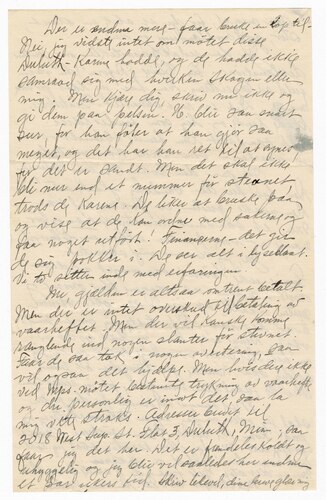 Der er endnu mere - faar bruke en lap til.
Nei, jeg vidste intet om møtet disse
Duluth-Karene hadde, og de hadde ikke
samraad sig med hverken Skogen eller
mig. Men kjære dig, skriv nu ikke og
gi dem paa pelsen. N. blir saa snart
sur, for han føler at han gjør saa
meget, og det har han ret til at synes
for det er sandt. Men det skal ikke
bli mer end et nummer før stevnet,
trods de Karene. De liker at bruske paa
og vise at de kan ordne med sakerne og
faa noget utført. Finanserne - det gir
de sig pokker i. De ser alt i
Vi to sitter inde med erfaringen
Nu, gjælden er altsaa omtrent betalt.
Men der er intet overskud til betaling av
vaarheftet. Men der vil kanske komme
ranglende ind nogen slanter før stevnet
Faar de saa tak i nogen avertering, saa
vil ogsaa det hjælpe. Men hvis der ikke
ved Mps. møtet bestemtes trykning av vaarheftet
og du personlig er imot det saa la
mig vite straks. Adresser brevet til
2018 West Sup. St. Flat 3, Duluth, Minn., saa
faar jeg det her. Det er fremdeles koldt og
uhyggelig og jeg blir vel saaledes her endnu
et par ukers tid. Skriv letvel, dine